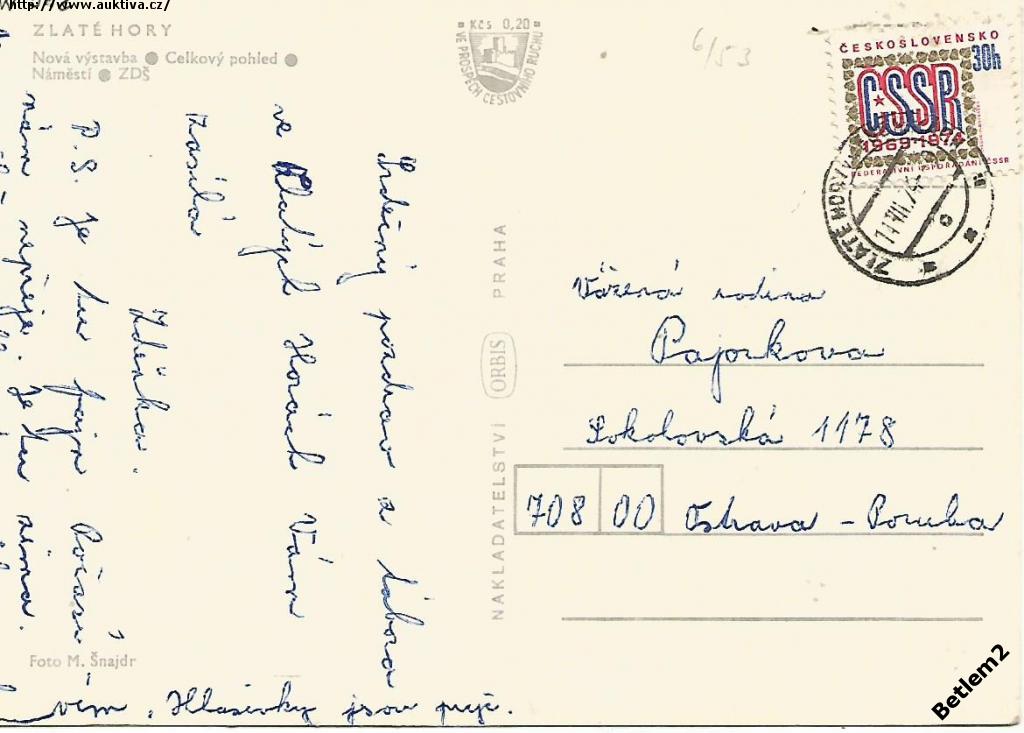 http://www.auktiva.cz/
ZLATÉ HORY
Nová výstavba ● Celkový pohled ●
Náměstí ● ZDŠ
Kčs 0,20
VE PROSPĚCH CESTOVNÍHO RUCHU
6/53
ČESKOSLOVENSKO
30h
ČSSR
1969-1974
FEDERATIVNÍ USPOŘÁDÁNÍ ČSSR
ZLATÉ HORY
Srdečný pozdrav z tábora
ve Zlatých Horách Vám
zasílá
Zdeňka.
P.S. Je tu fajn Počasí
nám nepřeje. Je tu zima.
vím. Hlásívky jsou pryč.
NAKLADATELSTVÍ ORBIS PRAHA
Vážená rodina
Pajorkova
Sokolovská 1178
708 00 Ostrava - Poruba
Foto M. Šnajdr
Betlem2